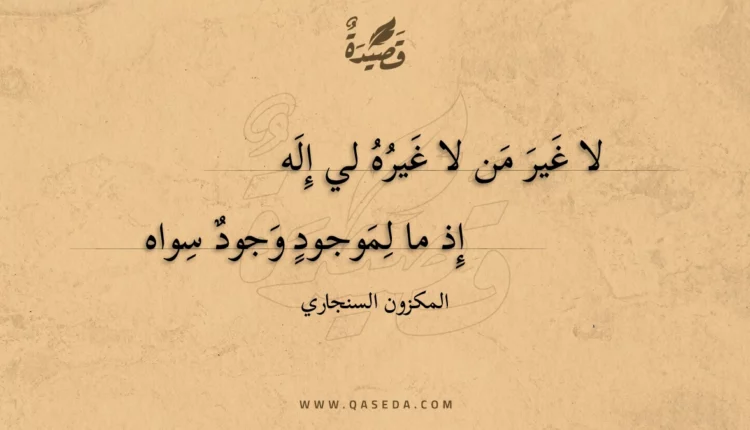 قَصِيدَةٌ
لا غَيرَ مَن لا غَيرُهُ لي إِلَه
إِذ ما لِمَوجودٍ وَجودٌ سِواه
المكزون السنجاري
WWW.QASEDA.COM